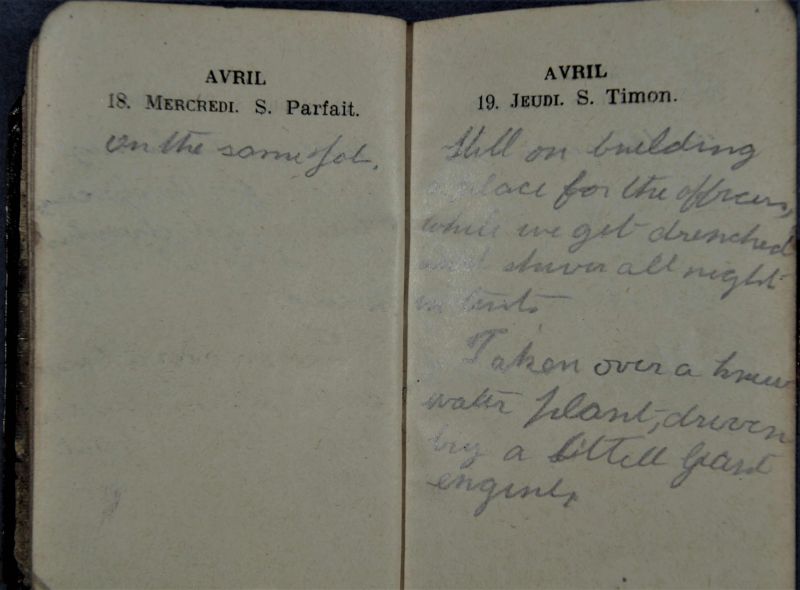 AVRIL
18. MERCREDI. S. Parfait.
on the same job.
AVRIL
19. JEUDI. S. Timon.
Still on building
a place for the officers,
while we get drenched
and shiver all night
in tents
Taken over a knew
water plant, driven
by a littell Giant
engine,